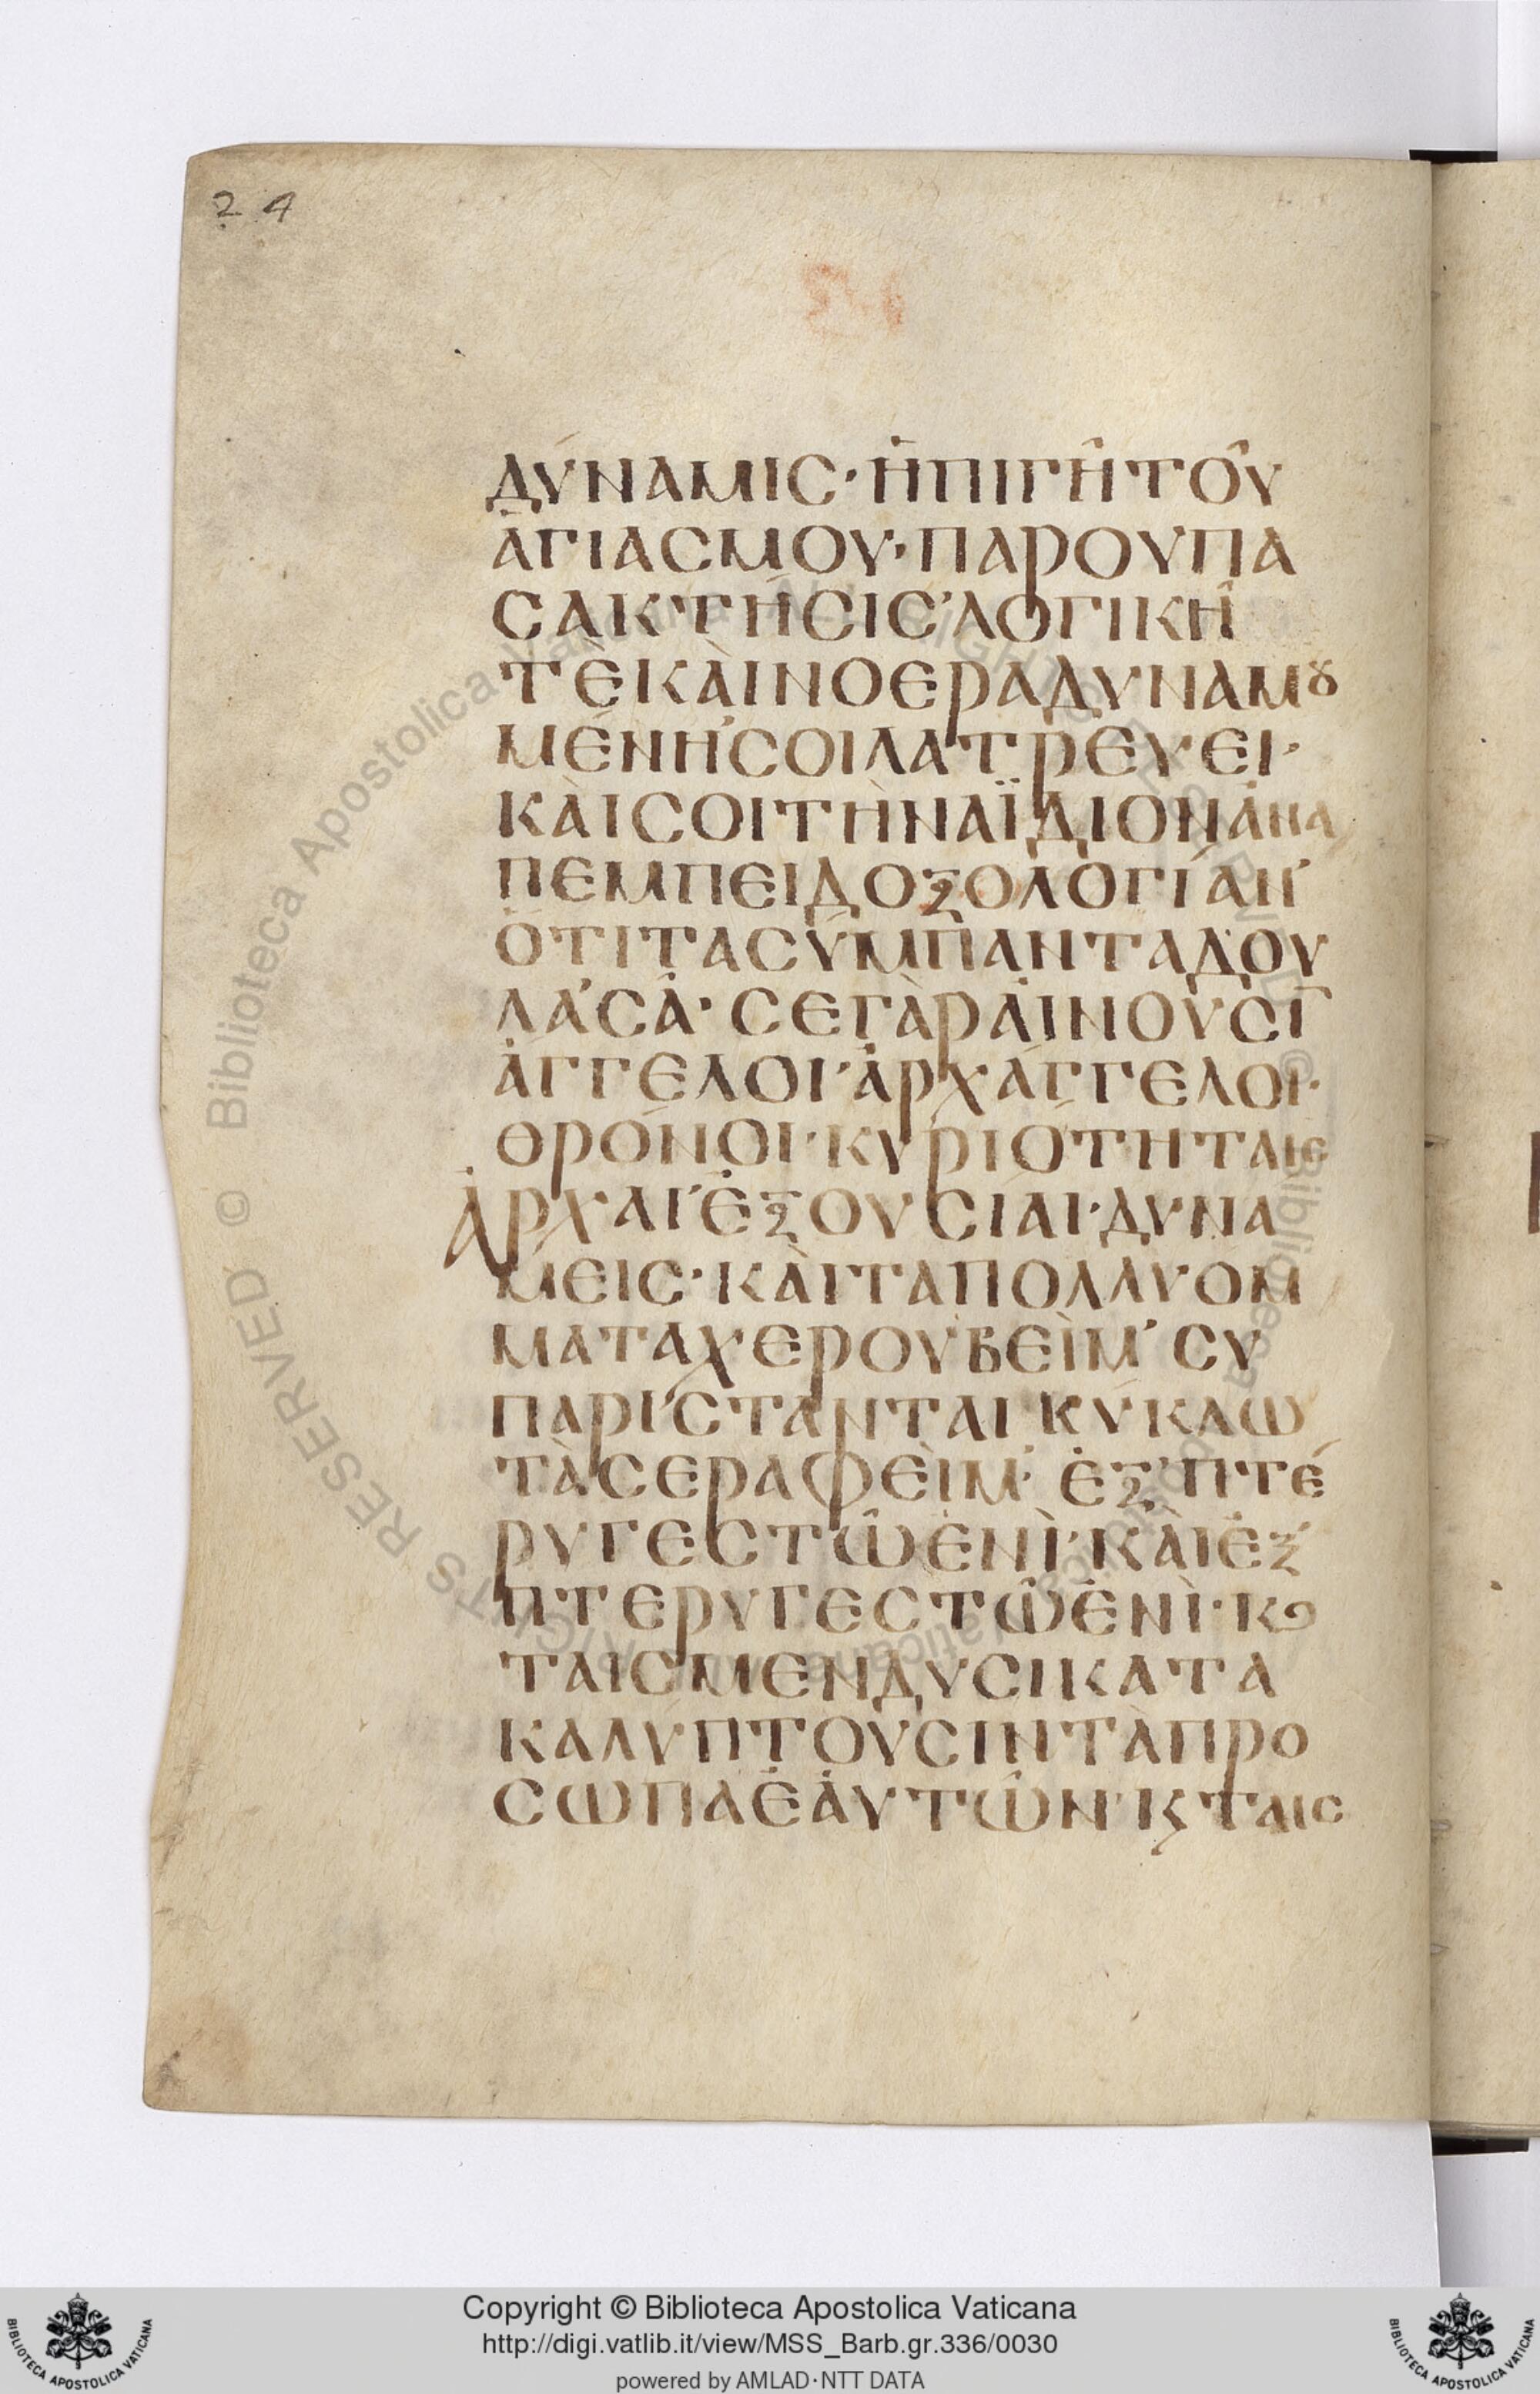 24
ΔΥΝΑΜΙC· Ἡ ΠΙΓῊ ΤΟΥ͂
ἉΓΙΑCΜΟΥ· ΠΑΡ ΟΥ ΠΑ
CΑ ΚΤΉCΙC ΛΟΓΙΚΗ͂
ΤῈ ΚΑῚ ΝΟΕΡΑ ΔΥΝΑΜȣ
ΜΈΝΗ CΟΙ ΛΑΤΡΕΥΕΙ·
ΚΑῚ CΟΙ ΤῊΝ ΑΪΔΙΟΝ ἈΝΑ
ΠΕΜΠΕΙ ΔΟΞΟΛΟΓΊΑΝ·
ὍΤΙ ΤΑ CΎΜΠΑΝΤΑ ΔΟΥ
ΛΑ CΆ· CΕ ΓᾺΡ ΑἸΝΟΥ͂CΙ
ἌΓΓΕΛΟΙ· ἈΡΧΆΓΓΕΛΟΙ·
ΘΡΌΝΟΙ· ΚΥΡΙΌΤΗΤΑΙC
ἈΡΧΑΙ· ἘΞΟΥCΊΑΙ· ΔΥΝΆ
ΜΕΙC· ΚΑῚ ΤΑ ΠΟΛΛΥΟΜ
ΜΑΤΑ ΧΕΡΟΥΒΕῚΜ· CΥ
ΠΑΡΊCΤΑΝΤΑΙ ΚΎΚΛΩ
ΤᾺ CΕΡΑΦΕῚΜ· ἙΞ ΠΤΈ
ΡΥΓΕC ΤΩ͂ ἙΝῚ· ΚΑῚ ἙΞ
ΠΤΕΡΥΓΕC ΤΩ͂ ἙΝῚ· Κ϶
ΤΑΙC ΜΕΝ ΔΥCΙ ΚΑΤΑ
ΚΑΛΎΠΤΟΥCΙΝ ΤᾺ ΠΡΟ
CΩΠΑ ἙΑΥΤΩ͂Ν· Ϗ ΤΑΙC
© Biblioteca Apostolica Vaticana
Copyright © Biblioteca Apostolica Vaticana
http://digi.vatlib.it/view/MSS_Barb.gr.336/0030
powered by AMLAD·NTT DATA
BIBLIOTECA APOSTOLICA VATICANA
BIBLIOTECA APOSTOLICA VATICANA